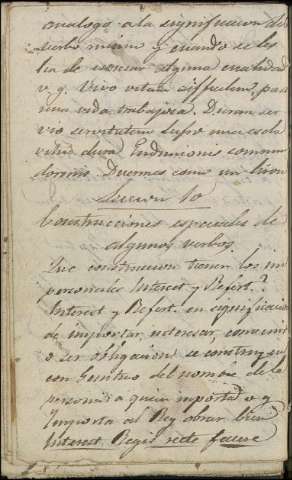 analogo a la significacion del
verbo mismo y cuando se les
ha de expresar alguna cualidad
v. g. Vivo vitam difficilem, paso
una vida trabajosa. Duram ser
vio servitutem sufro una escla
vitud dura Endimionis somnum
dormis. Duermes como un liron
Leccion 10
Construcciones especiales de
algunos verbos
Que construccion tienen los im
personales Interest y Refert.?
Interest y Refert. en significacion
de importar, interesar, convenir
o ser obligacion se construyen
con Genitivo del nombre de la
persona a quien importa v. g
Importa al Rey obrar bien
Interest Regis recte facere